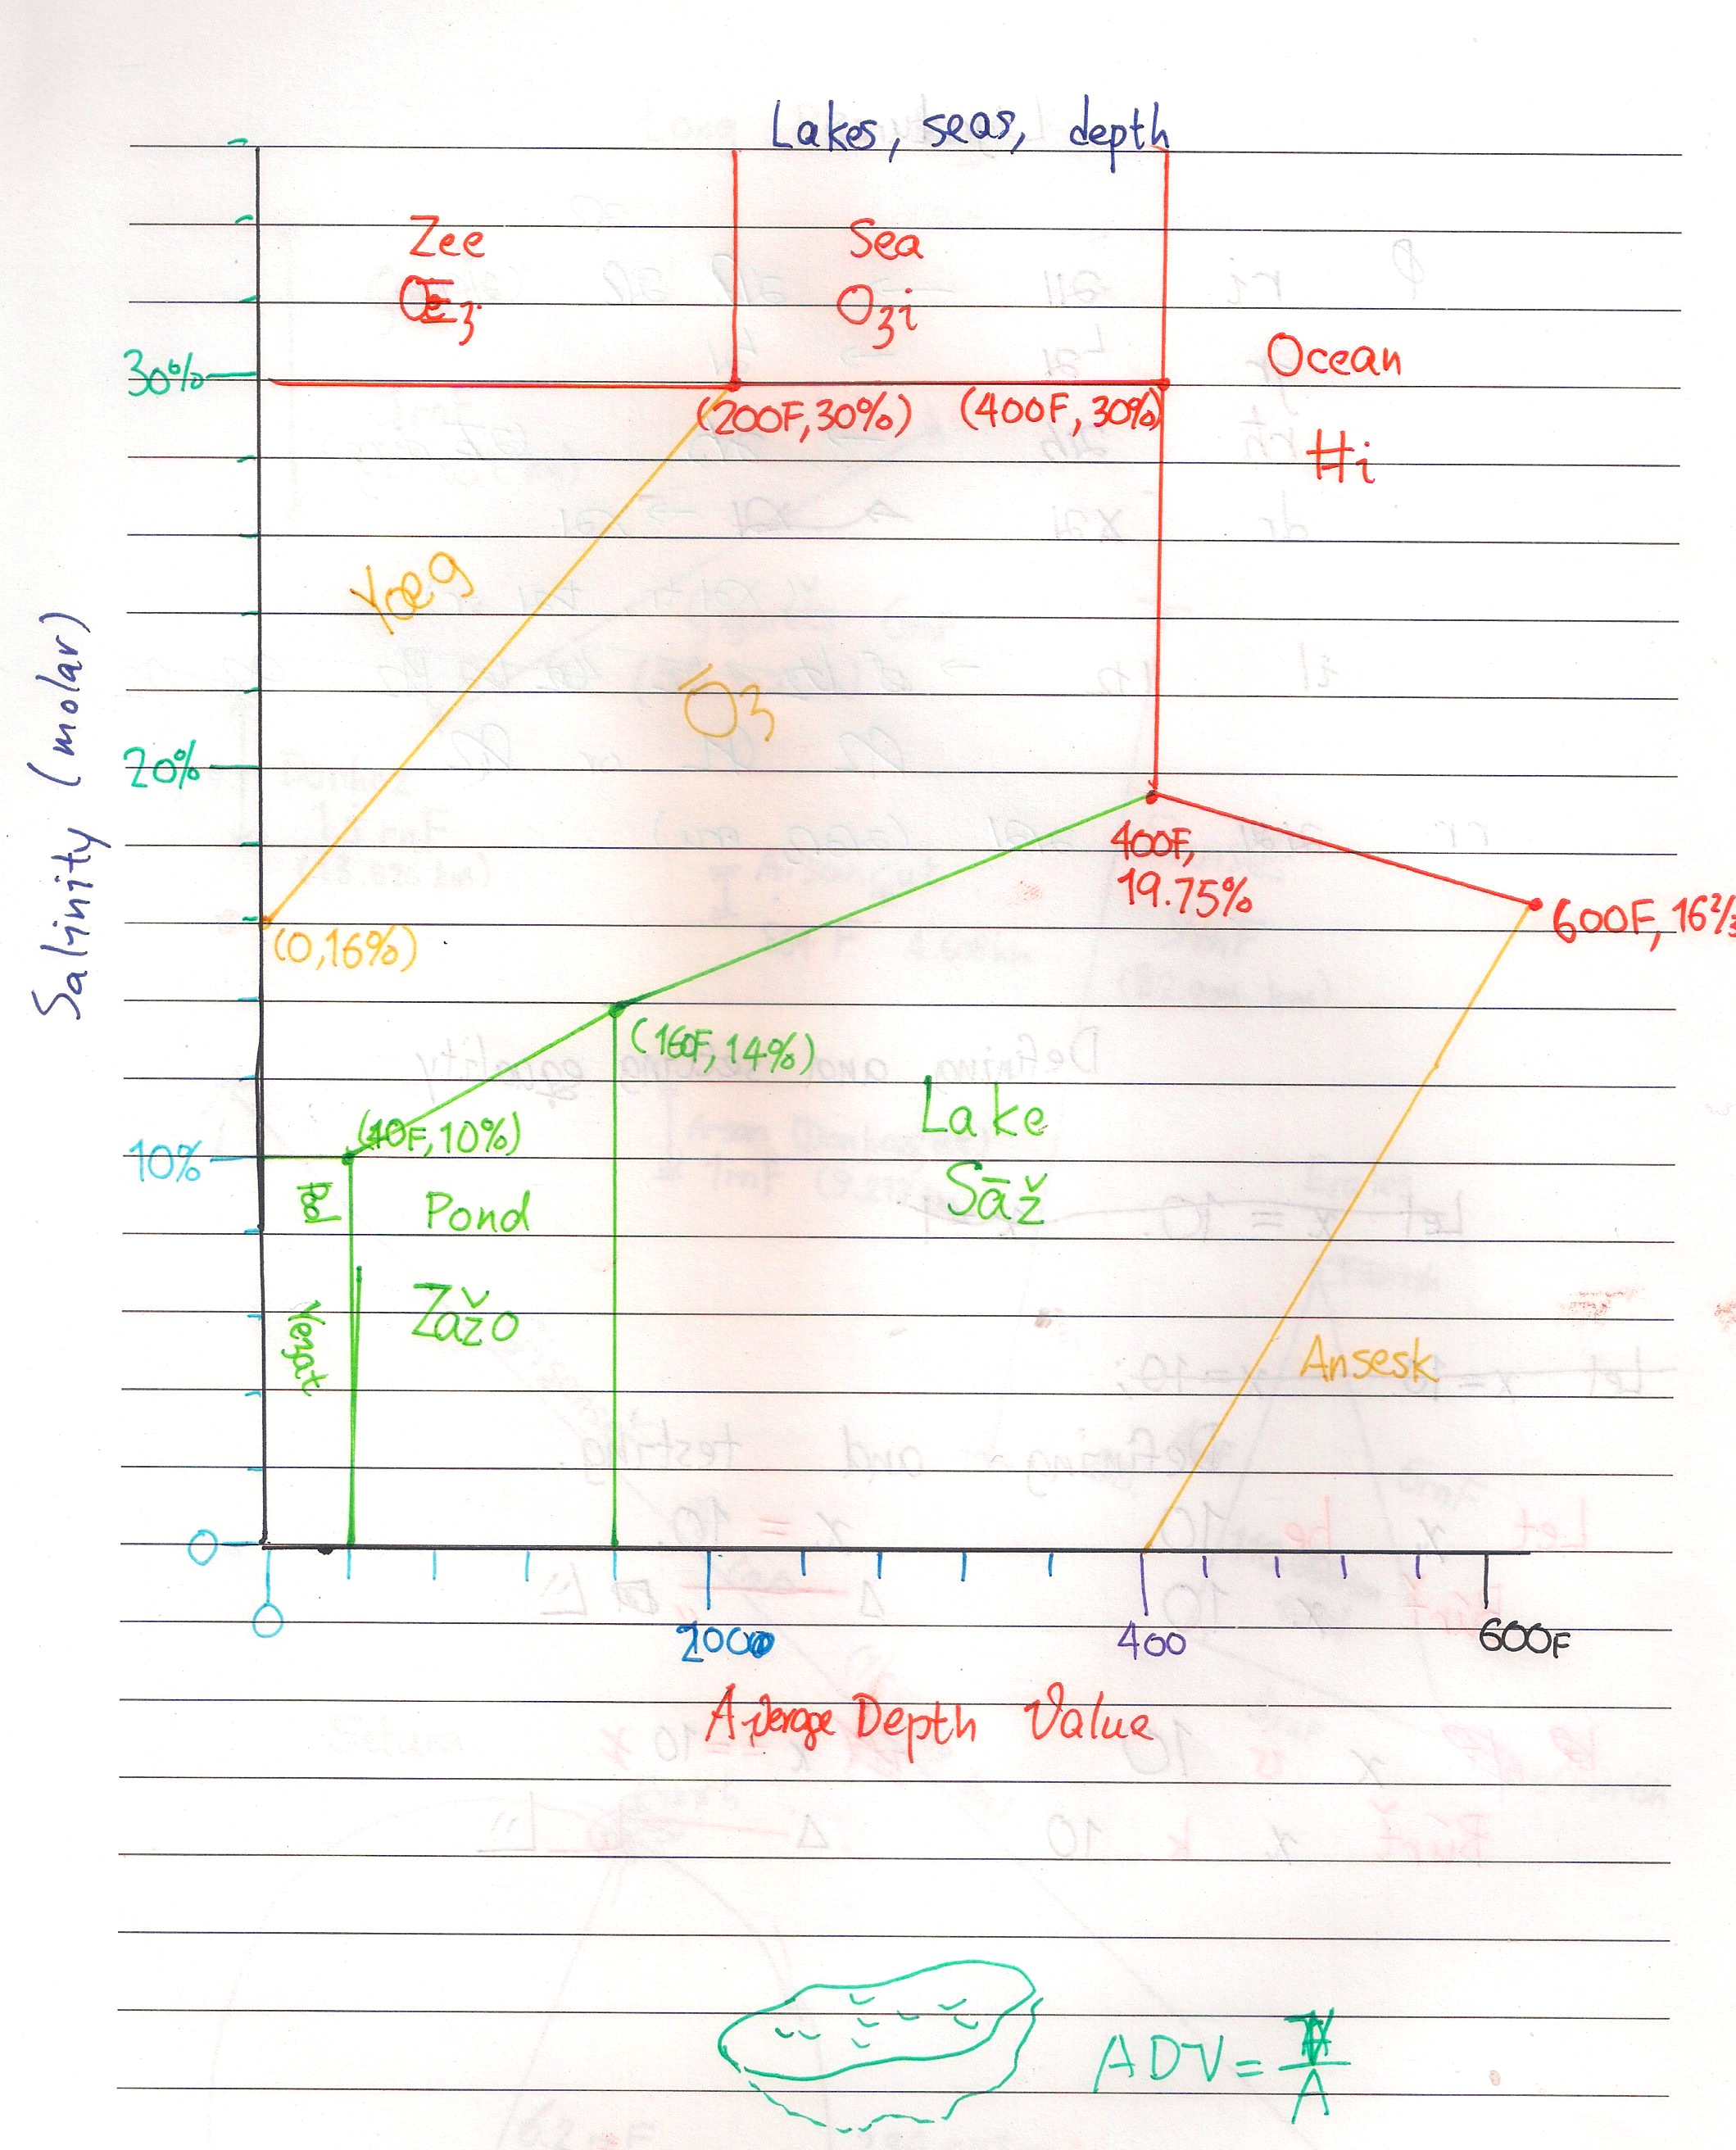 Lakes, seas, depth
Zee
Sea
O3i
30%
Ocean
(200F, 30%) (400F, 30%)
Hi
Yœg
Ō3
Salinity (molar)
20%
400F,
19.75%
600F, 16⅔
(0, 16%)
(160F, 14%)
Lake
(40F, 10%)
10%
Pond
Sāž
Zažo
Ansesk
0
0
400
600F
Average Depth Value
ADV = V/A